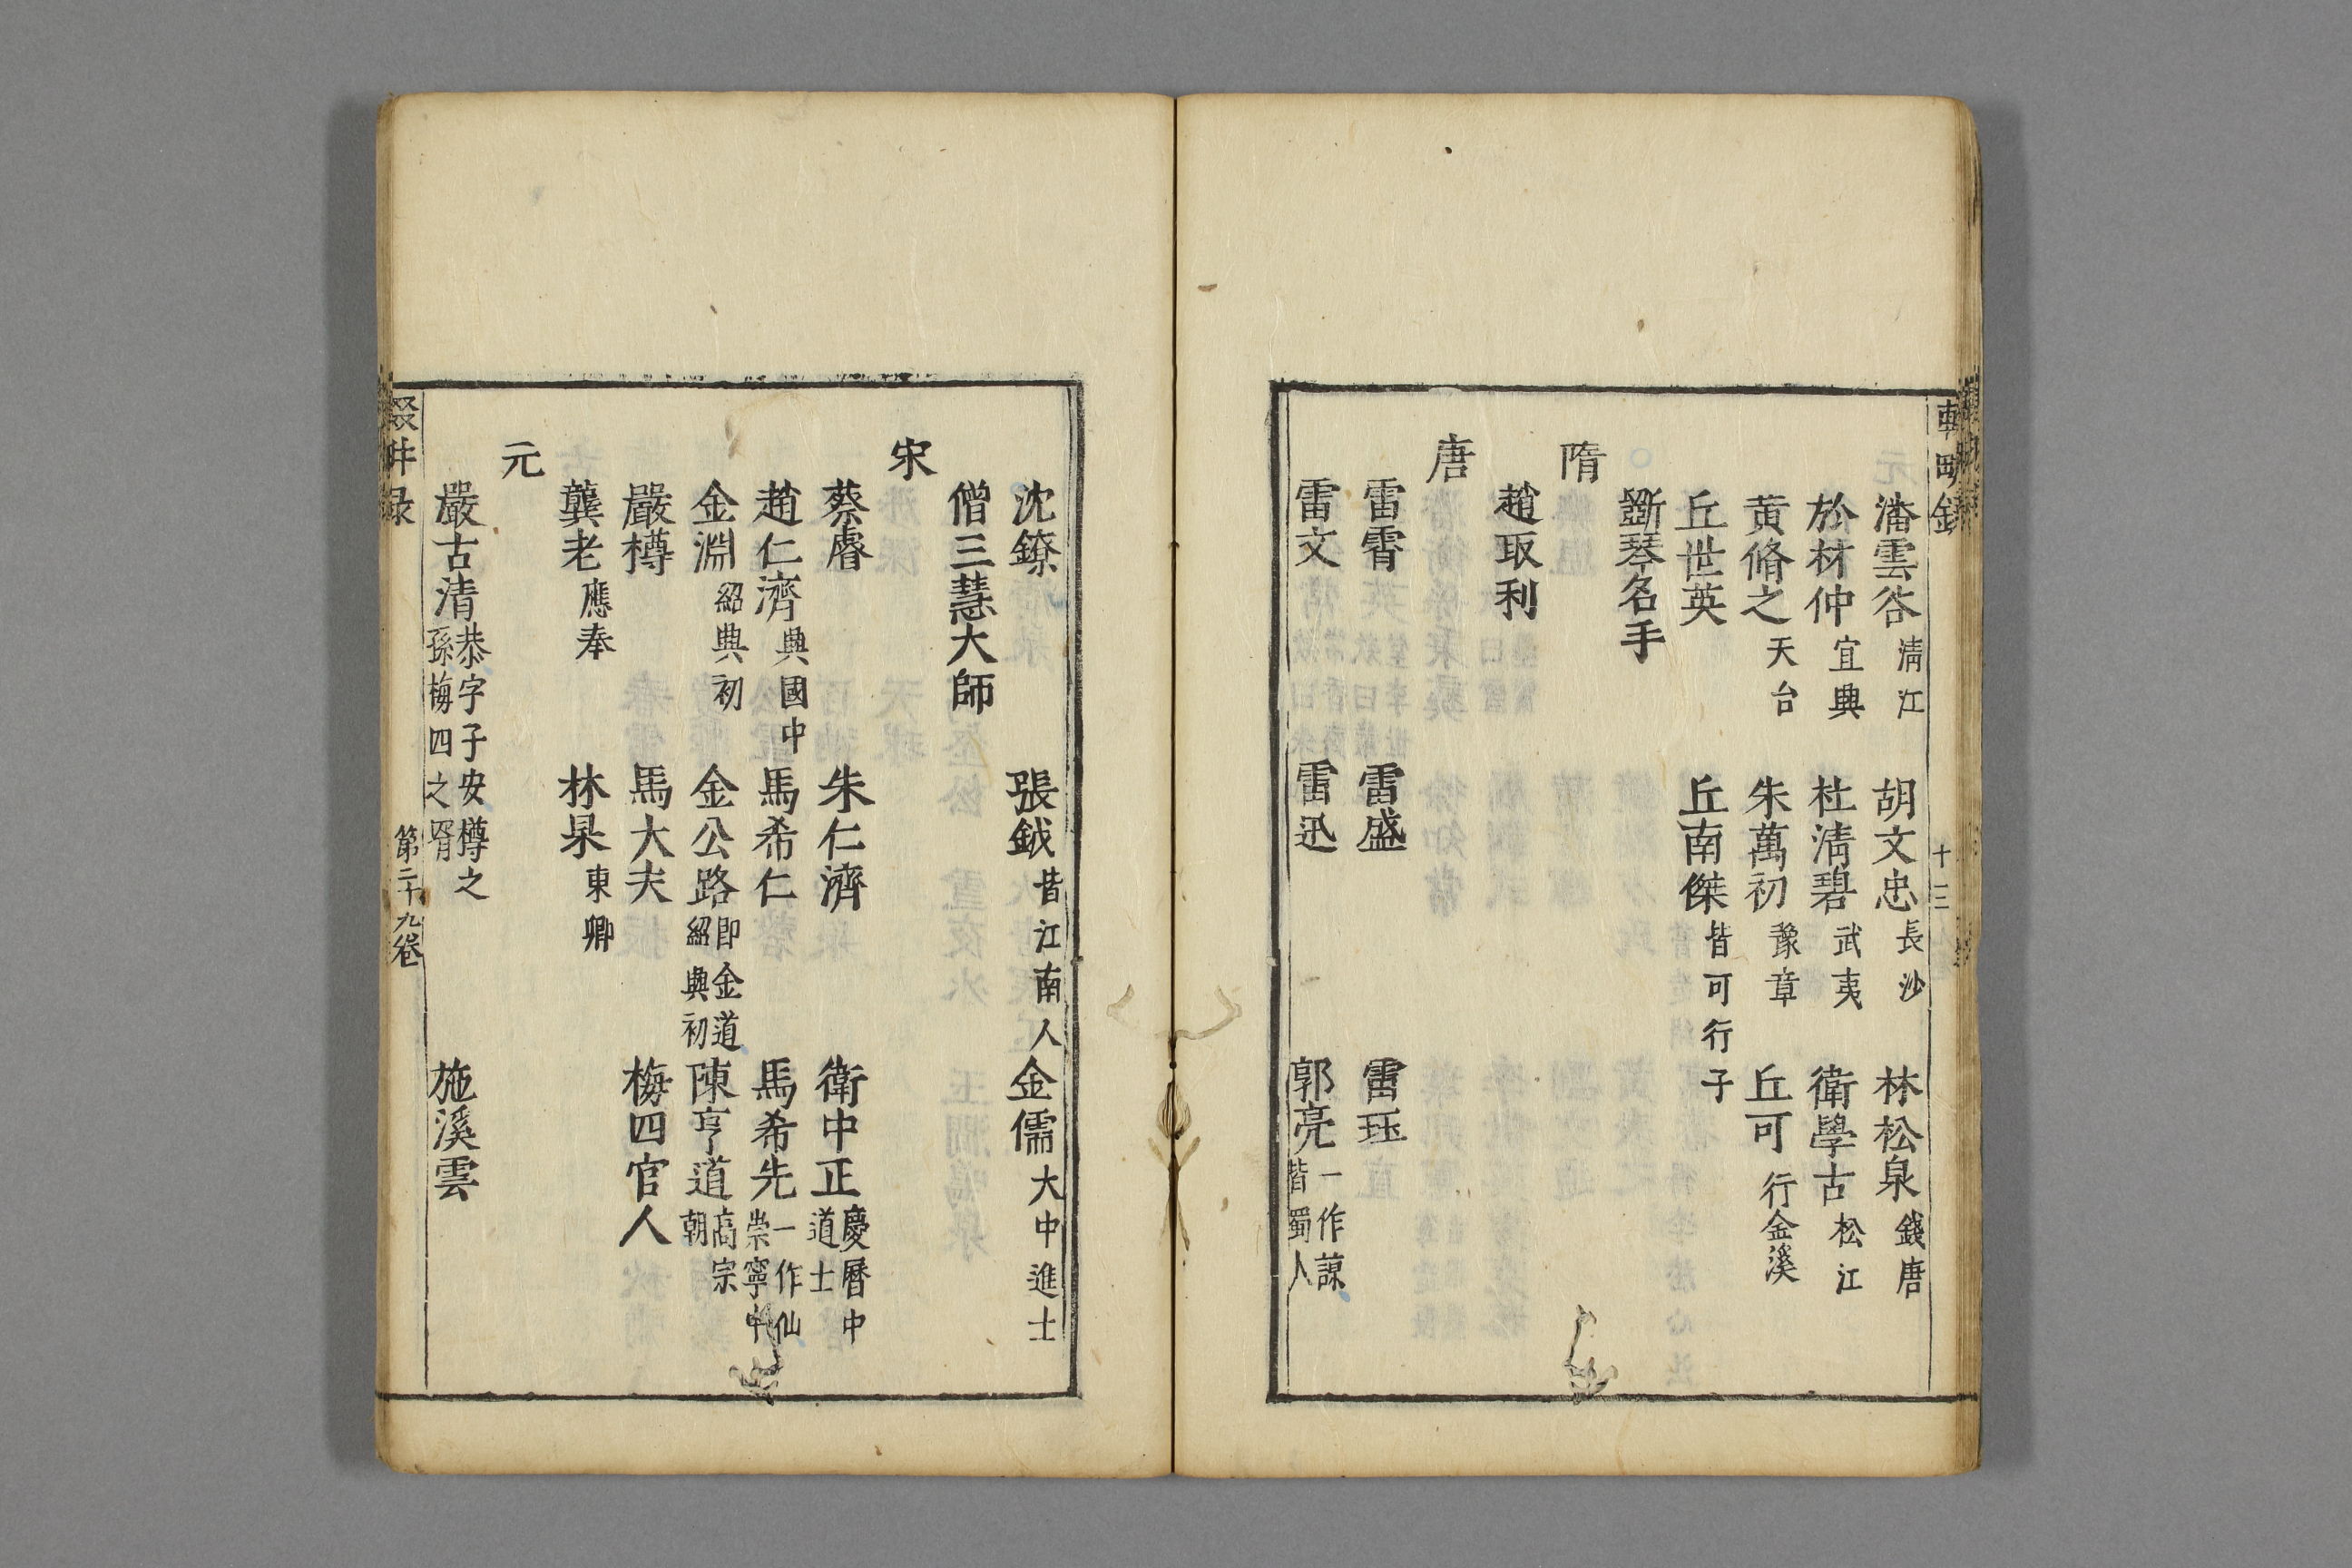 潘雲谷清江　胡文忠長沙　林松泉錢唐
於材仲宜興　杜清碧武夷　衛學古松江
黃脩之天台　朱萬初豫章　丘可行金溪
丘世英　丘南傑皆可行子
斵琴名手
隋
趙取利
唐
雷霄　雷盛　雷珏
雷文　雷迅　郭亮一作諒皆蜀人
沈鐐　張鉞皆江南人　金儒大中進士
僧三慧大師
宋
蔡睿　朱仁濟　衛中正慶曆中道士
趙仁濟興國中　馬希仁　馬希先一作仙崇寧中
金淵紹興初　金公路即金道紹興初　陳亨道高宗朝
嚴樽　馬大夫　梅四官人
龔老應奉　林杲東卿
元
嚴古清恭字子安樽之孫梅四之壻　施溪雲
第二十九卷
十三